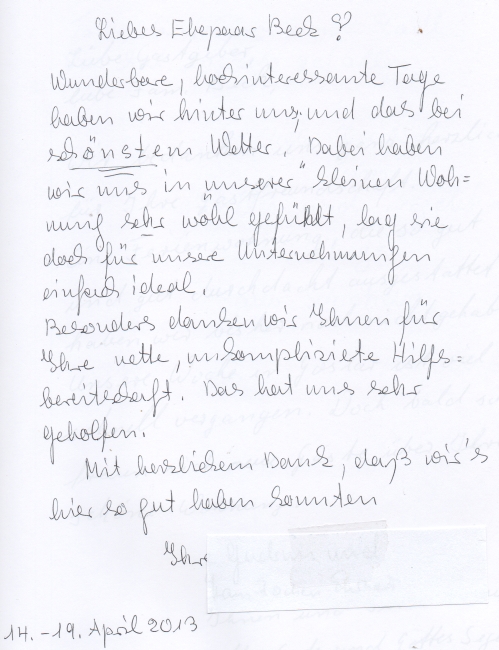 Liebes Ehepaar Beck!
Wunderbare, hochinteressante Tage
haben wir hinter uns, und das bei
schönstem Wetter. Dabei haben
wir uns in unserer "kleinen Woh=
nung" sehr wohl gefühlt, lag sie
doch für unsere Unternehmungen
einfach ideal.
Besonders danken wir Ihnen für
Ihre nette, unkomplizierte Hilfs=
bereitschaft. Das hat uns sehr
geholfen.
Mit herzlichem Dank, daß wir's
hier so gut haben konnten
Ihre
14. - 19. April 2013